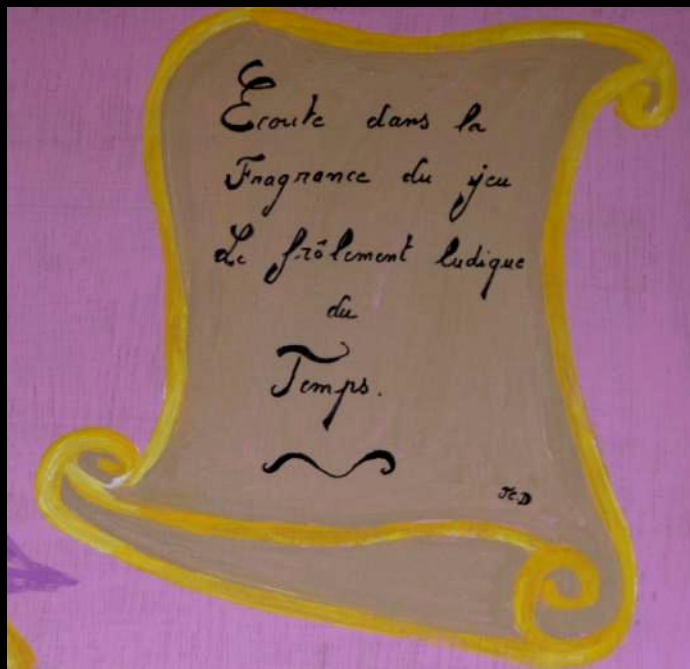 Écoute dans la
Fragrance du jeu
Le frôlement ludique
du
Temps.
JCD